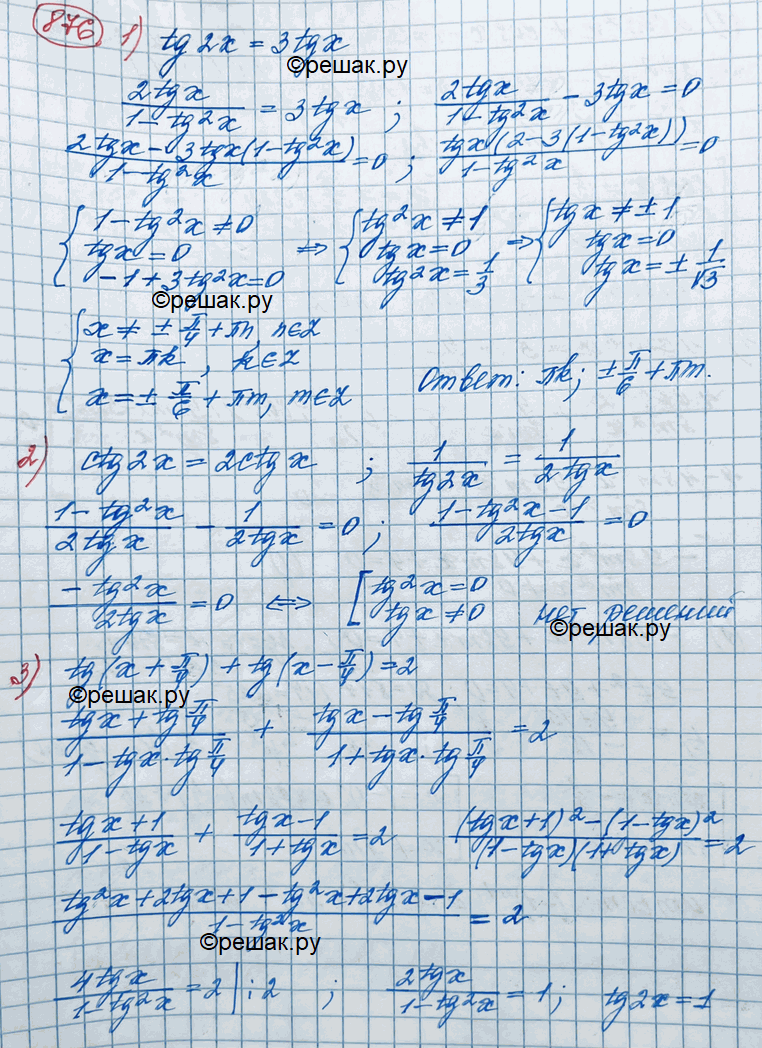 876. 1) tg 2x = 3 tg x
©решак.ру
2tgx/(1-tg²x) = 3tgx ; 2tgx/(1-tg²x) - 3tgx = 0
(2tgx - 3tgx(1-tg²x))/(1-tg²x) = 0 ; tgx(2-3(1-tg²x))/(1-tg²x) = 0
{ 1-tg²x ≠ 0 ⇔ { tg²x ≠ 1 ⇒ { tgx ≠ ± 1
tgx = 0 tgx = 0 tgx = 0
-1+3tg²x = 0 tg²x = 1/3 tgx = ± 1/√3
©решак.ру
{ x ≠ ± π/4 + πn, n∈Z
x = πk, k∈Z
x = ± π/6 + πm, m∈Z Ответ: πk; ± π/6 + πm.
2) ctg 2x = 2ctg x ; 1/tg2x = 1/2tgx
(1-tg²x)/2tgx - 1/2tgx = 0 ; (1-tg²x-1)/2tgx = 0
-tg²x/2tgx = 0 ⇔ [ tg²x = 0
tgx ≠ 0 нет решений
©решак.ру
3) tg(x + π/4) + tg(x - π/4) = 2
©решак.ру
(tgx + tg π/4)/(1 - tgx · tg π/4) + (tgx - tg π/4)/(1 + tgx · tg π/4) = 2
(tgx+1)/(1-tgx) + (tgx-1)/(1+tgx) = 2 ((tgx+1)² - (1-tgx)²)/((1-tgx)(1+tgx)) = 2
(tg²x + 2tgx + 1 - tg²x + 2tgx - 1)/(1-tg²x) = 2
©решак.ру
4tgx/(1-tg²x) = 2 | : 2 ; 2tgx/(1-tg²x) = 1 ; tg2x = 1